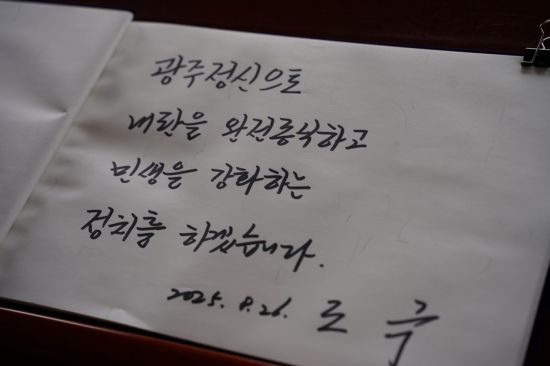 광주정신으로
내란을 완전종식하고
민생을 강화하는
정치를 하겠습니다.
2025. 8.26. 조 국